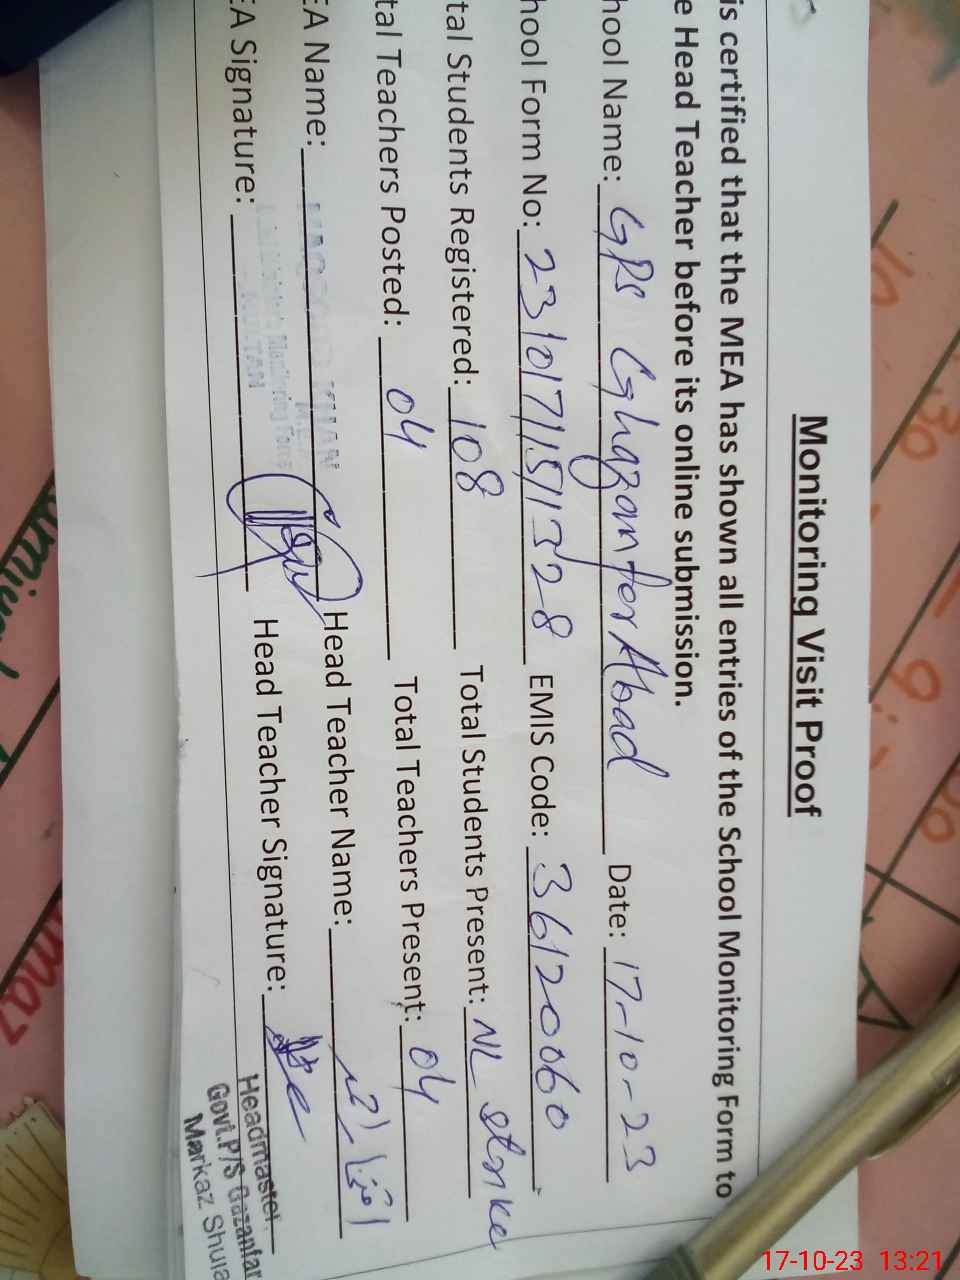 Monitoring Visit Proof
is certified that the MEA has shown all entries of the School Monitoring Form to
e Head Teacher before its online submission.
hool Name: GPS Ghazanfar Abad Date: 17-10-23
hool Form No: 23101711511328 EMIS Code: 36120060
tal Students Registered: 108 Total Students Present: NL strike
tal Teachers Posted: 04 Total Teachers Present: 04
EA Name: Head Teacher Name:
EA Signature: Head Teacher Signature:
Headmaster
Govt.P/S Gazanfar
Markaz Shuja
17-10-23 13:21